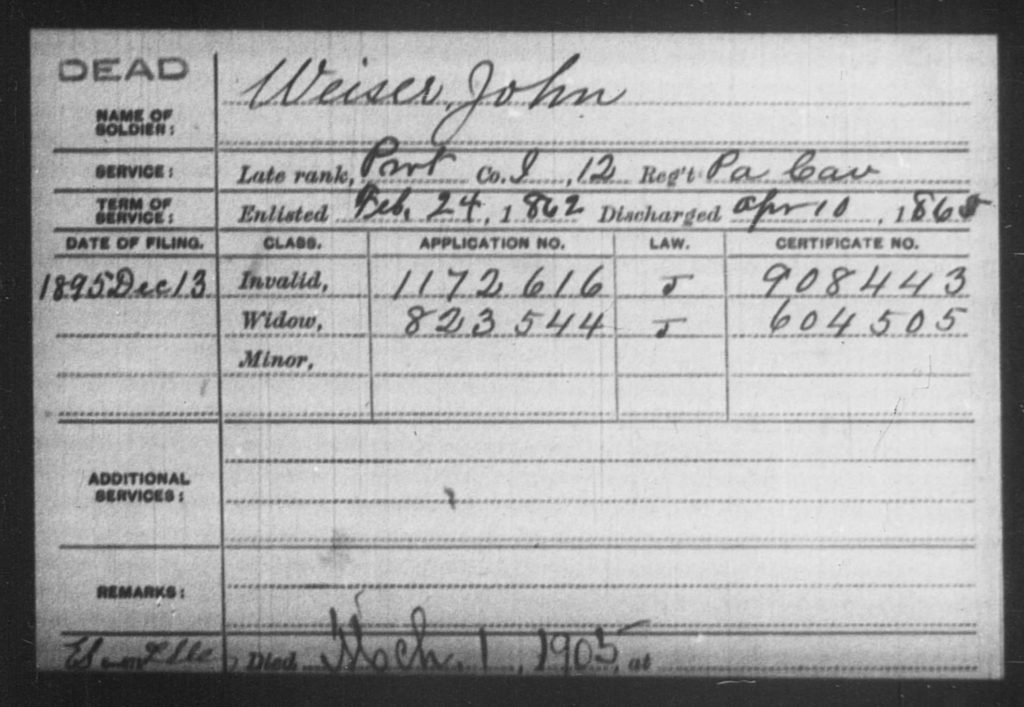 DEAD
NAME OF SOLDIER: Weiser, John
SERVICE: Late rank, Prvt Co. I, 12 Reg't Pa Cav
TERM OF SERVICE: Enlisted Feb, 24, 1862 Discharged Apr 10, 1865
DATE OF FILING. CLASS. APPLICATION NO. LAW. CERTIFICATE NO.
1895 Dec 13 Invalid, 1172616 J 908443
Widow, 823544 J 604505
Minor,
ADDITIONAL SERVICES:
REMARKS:
Died Mch. 1, 1905, at